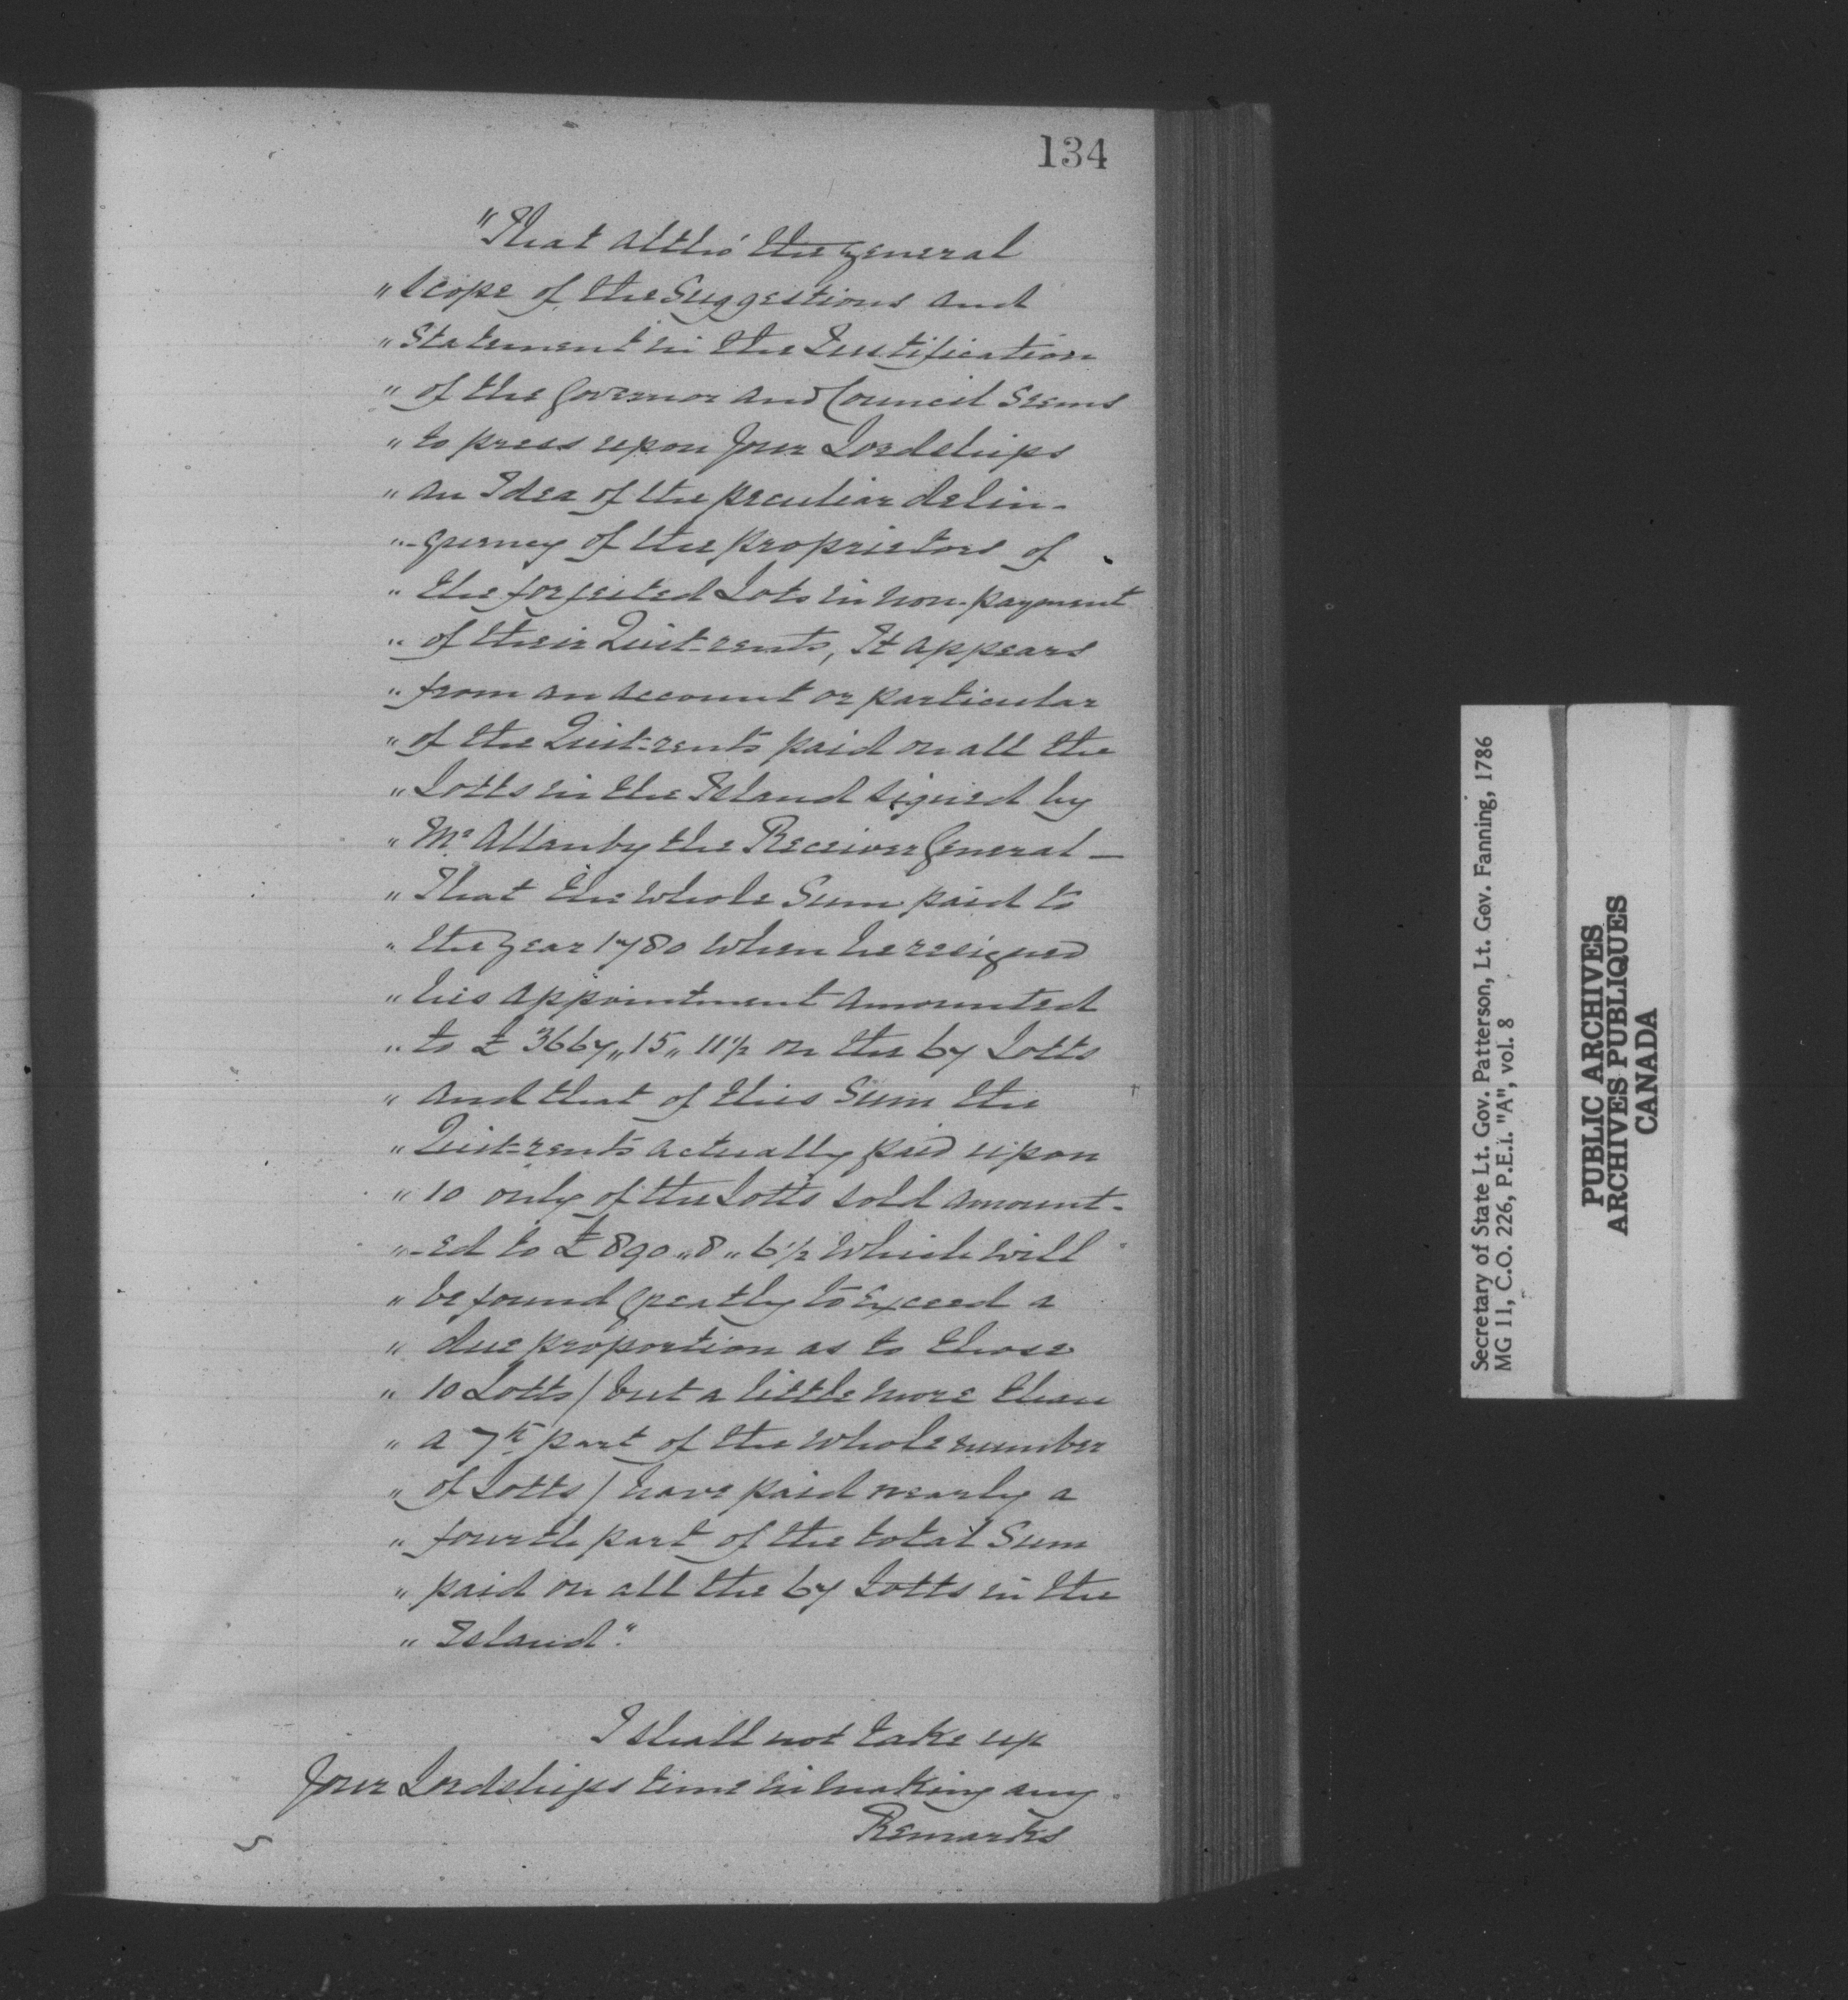 134
"That altho' the general
" scope of the Suggestions and
" Statement in the Justification
" of the Governor and Council Seems
" to press upon Your Lordships
" an Idea of the peculiar delin-
" -quency of the proprietors of
" the forfeited Lots in non-payment
" of their Quit-rents, It appears
" from an account or particular
" of the Quit-rents paid on all the
" Lotts in the Island signed by
" Mr Allanby the Receiver General —
" That the whole Sum paid to
" the year 1780 when he resigned
" his appointment amounted
" to £ 3667,,15,,11½ on the 67 Lotts
" and that of this Sum the
" Quit-rents actually paid upon
" 10 only of the Lotts sold amount-
" -ed to £890,,8,,6½ which will
" be found greatly to Exceed a
" due proportion as to those
" 10 Lotts / but a little more than
" a 7th part of the whole number
" of Lotts / have paid nearly a
" fourth part of the total Sum
" paid on all the 67 Lotts in the
" Island".
I shall not take up
Your Lordships time in making any
Remarks
Secretary of State Lt. Gov. Patterson, Lt. Gov. Fanning, 1786
MG 11, C.O. 226, P.E.I. "A", vol. 8
PUBLIC ARCHIVES
ARCHIVES PUBLIQUES
CANADA